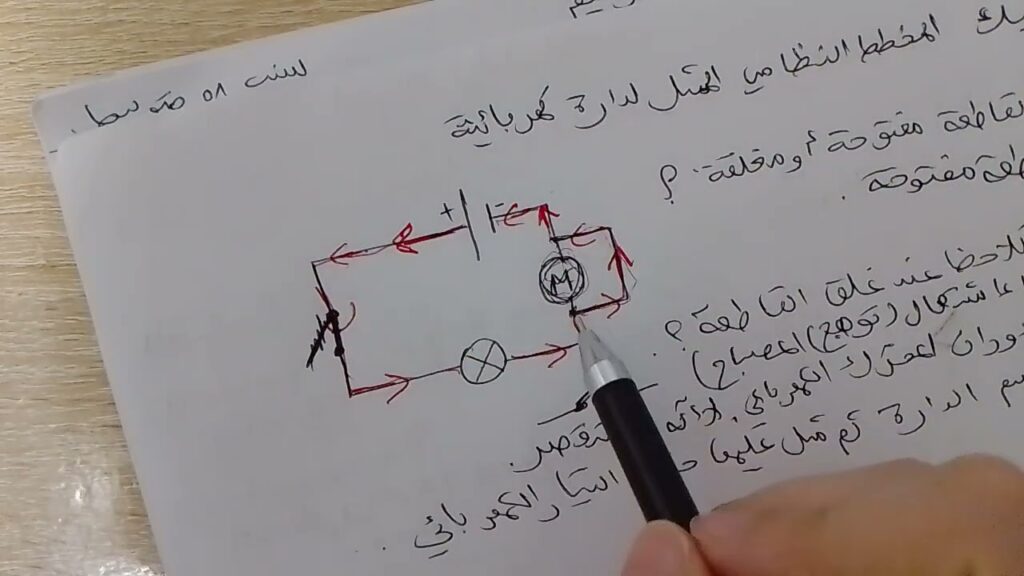 ليك المخطط النظامي الممثل لدارة كهربائية
لقاطعة مفتوحة أو مغلقة ؟
مفتوحة .
تلاحظ عند غلق القاطعة ؟
اشتعال (توهج) المصباح)
دوران المحرك الكهربائي لأنه
سم الدارة ثم مثل عليها
التيار الكهربائي .
+
-
M